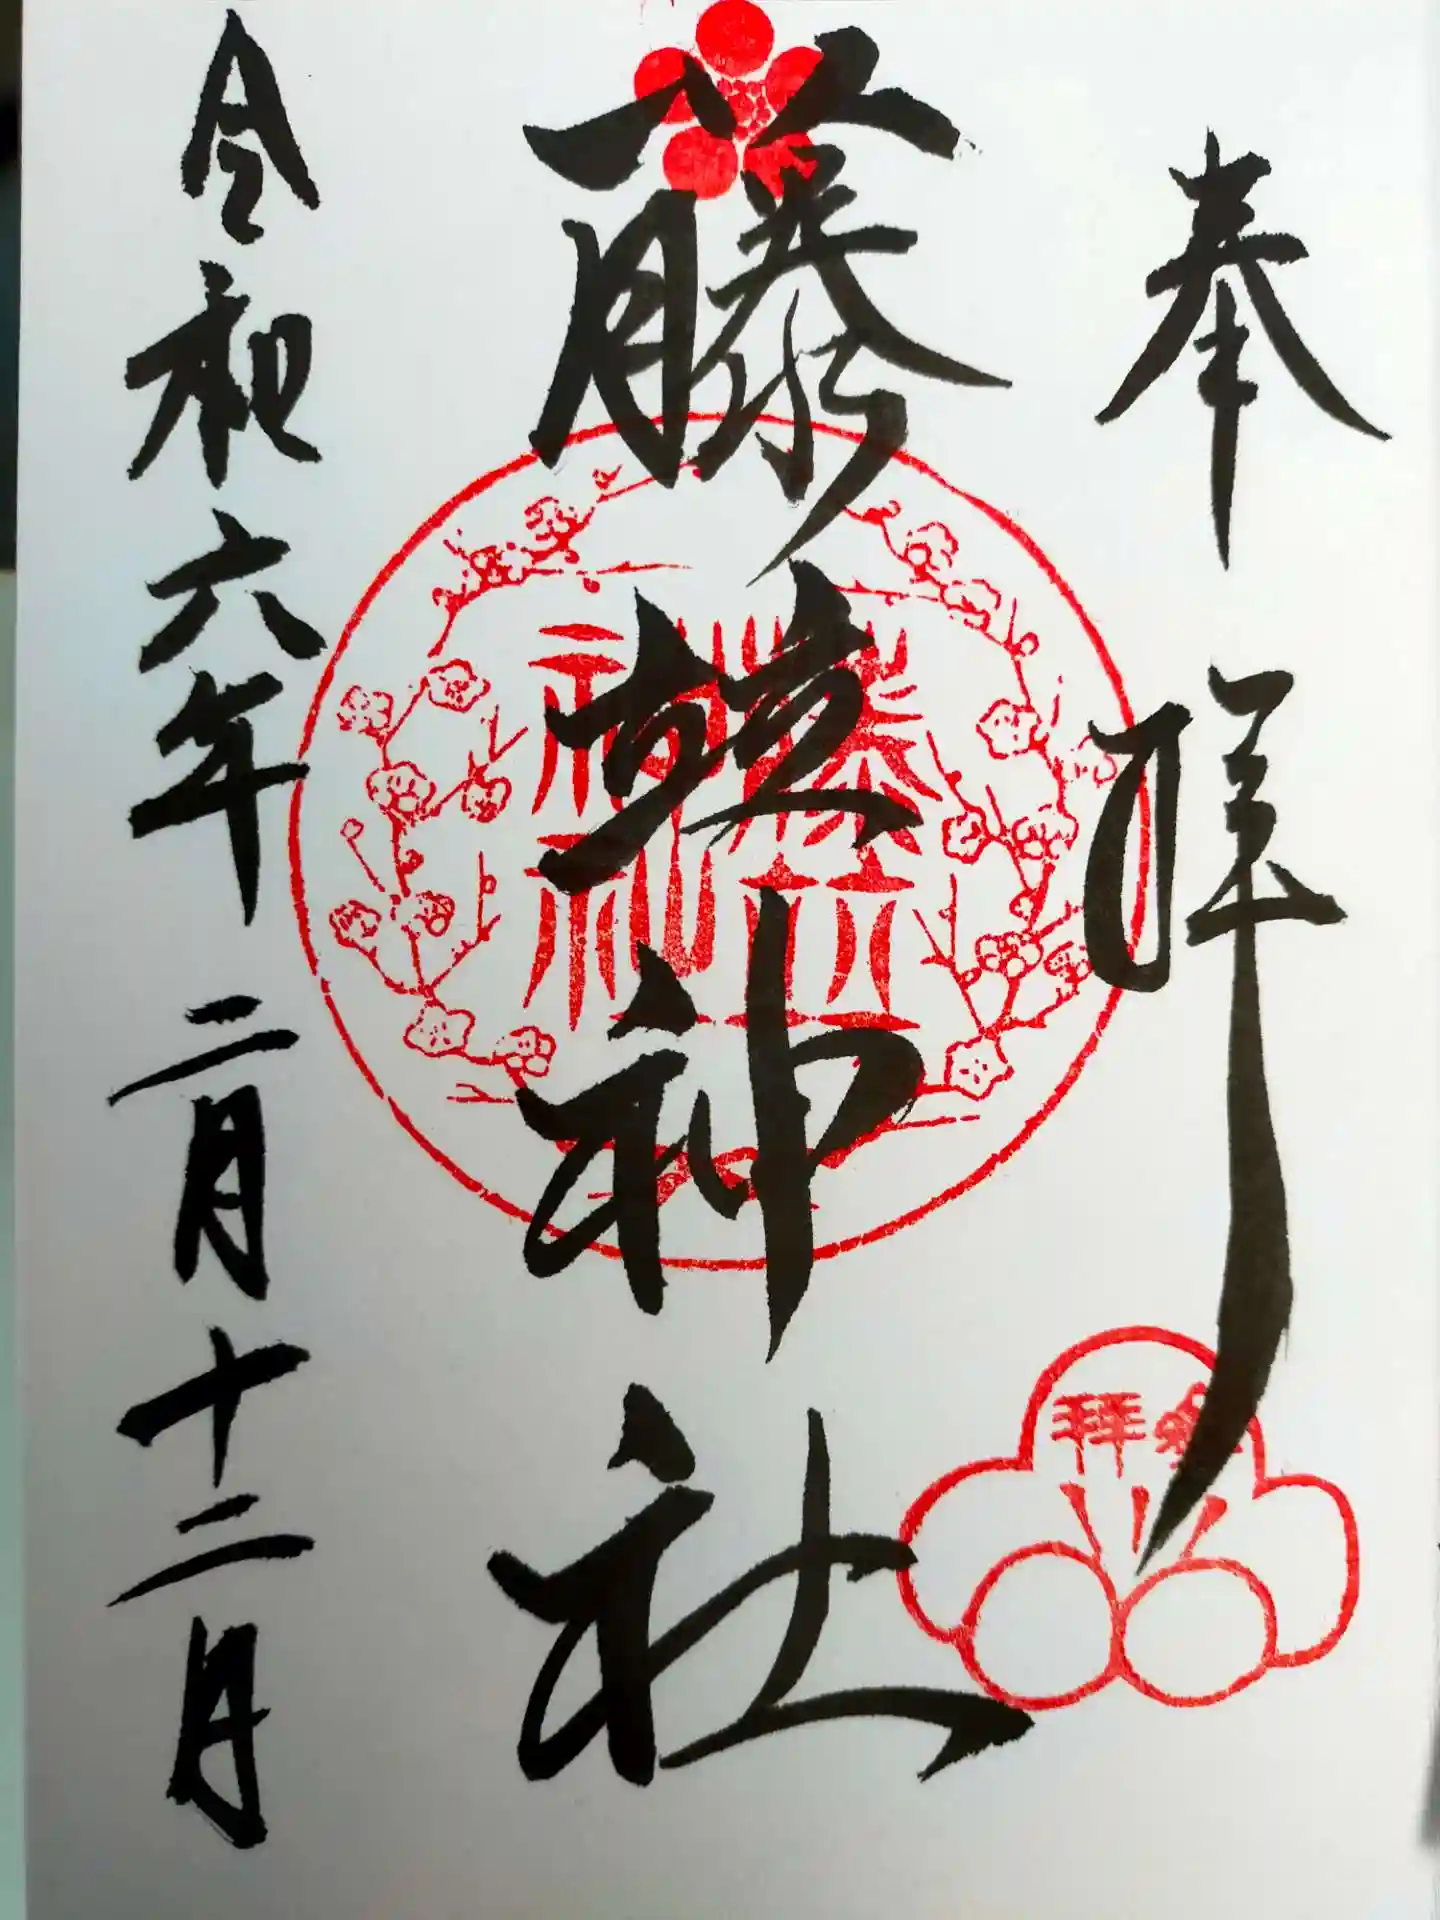 奉拝
参拝
藤竝神社
藤竝
神社
令和六年二月十二日